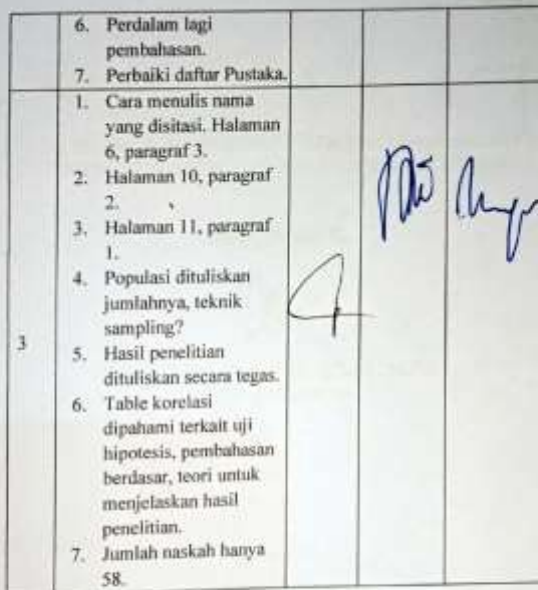 6. Perdalam lagi
pembahasan.
7. Perbaiki daftar Pustaka.
3
1. Cara menulis nama
yang disitasi. Halaman
6, paragraf 3.
2. Halaman 10, paragraf
2.
3. Halaman 11, paragraf
1.
4. Populasi dituliskan
jumlahnya, teknik
sampling?
5. Hasil penelitian
dituliskan secara tegas.
6. Table korelasi
dipahami terkait uji
hipotesis, pembahasan
berdasar, teori untuk
menjelaskan hasil
penelitian.
7. Jumlah naskah hanya
58.